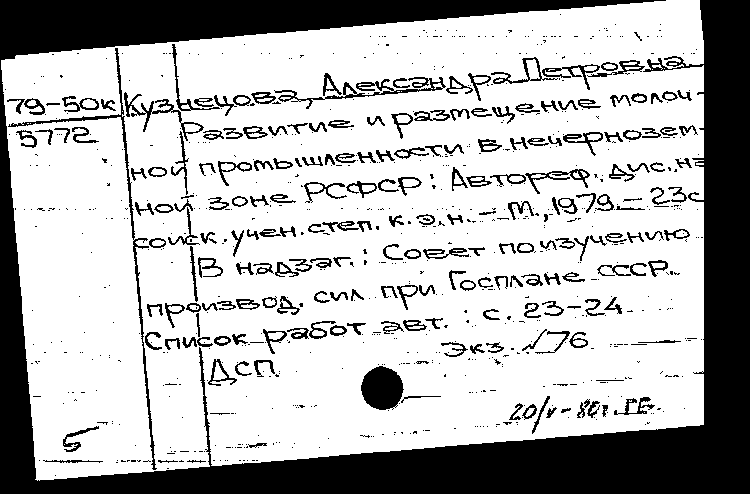 79-50к Кузнецова, Александра Петровна
5772 Развитие и размещение молоч-
ной промышленности в нечернозем-
ной зоне РСФСР: Автореф. дис. на
соиск. учен. степ. к. э. н. – М., 1979. – 23с
В надзаг.: Совет по изучению
производ. сил при Госплане СССР.
Список работ авт.: с. 23-24
Экз. √76
ДСП
20/V-80г. ГЕ
5